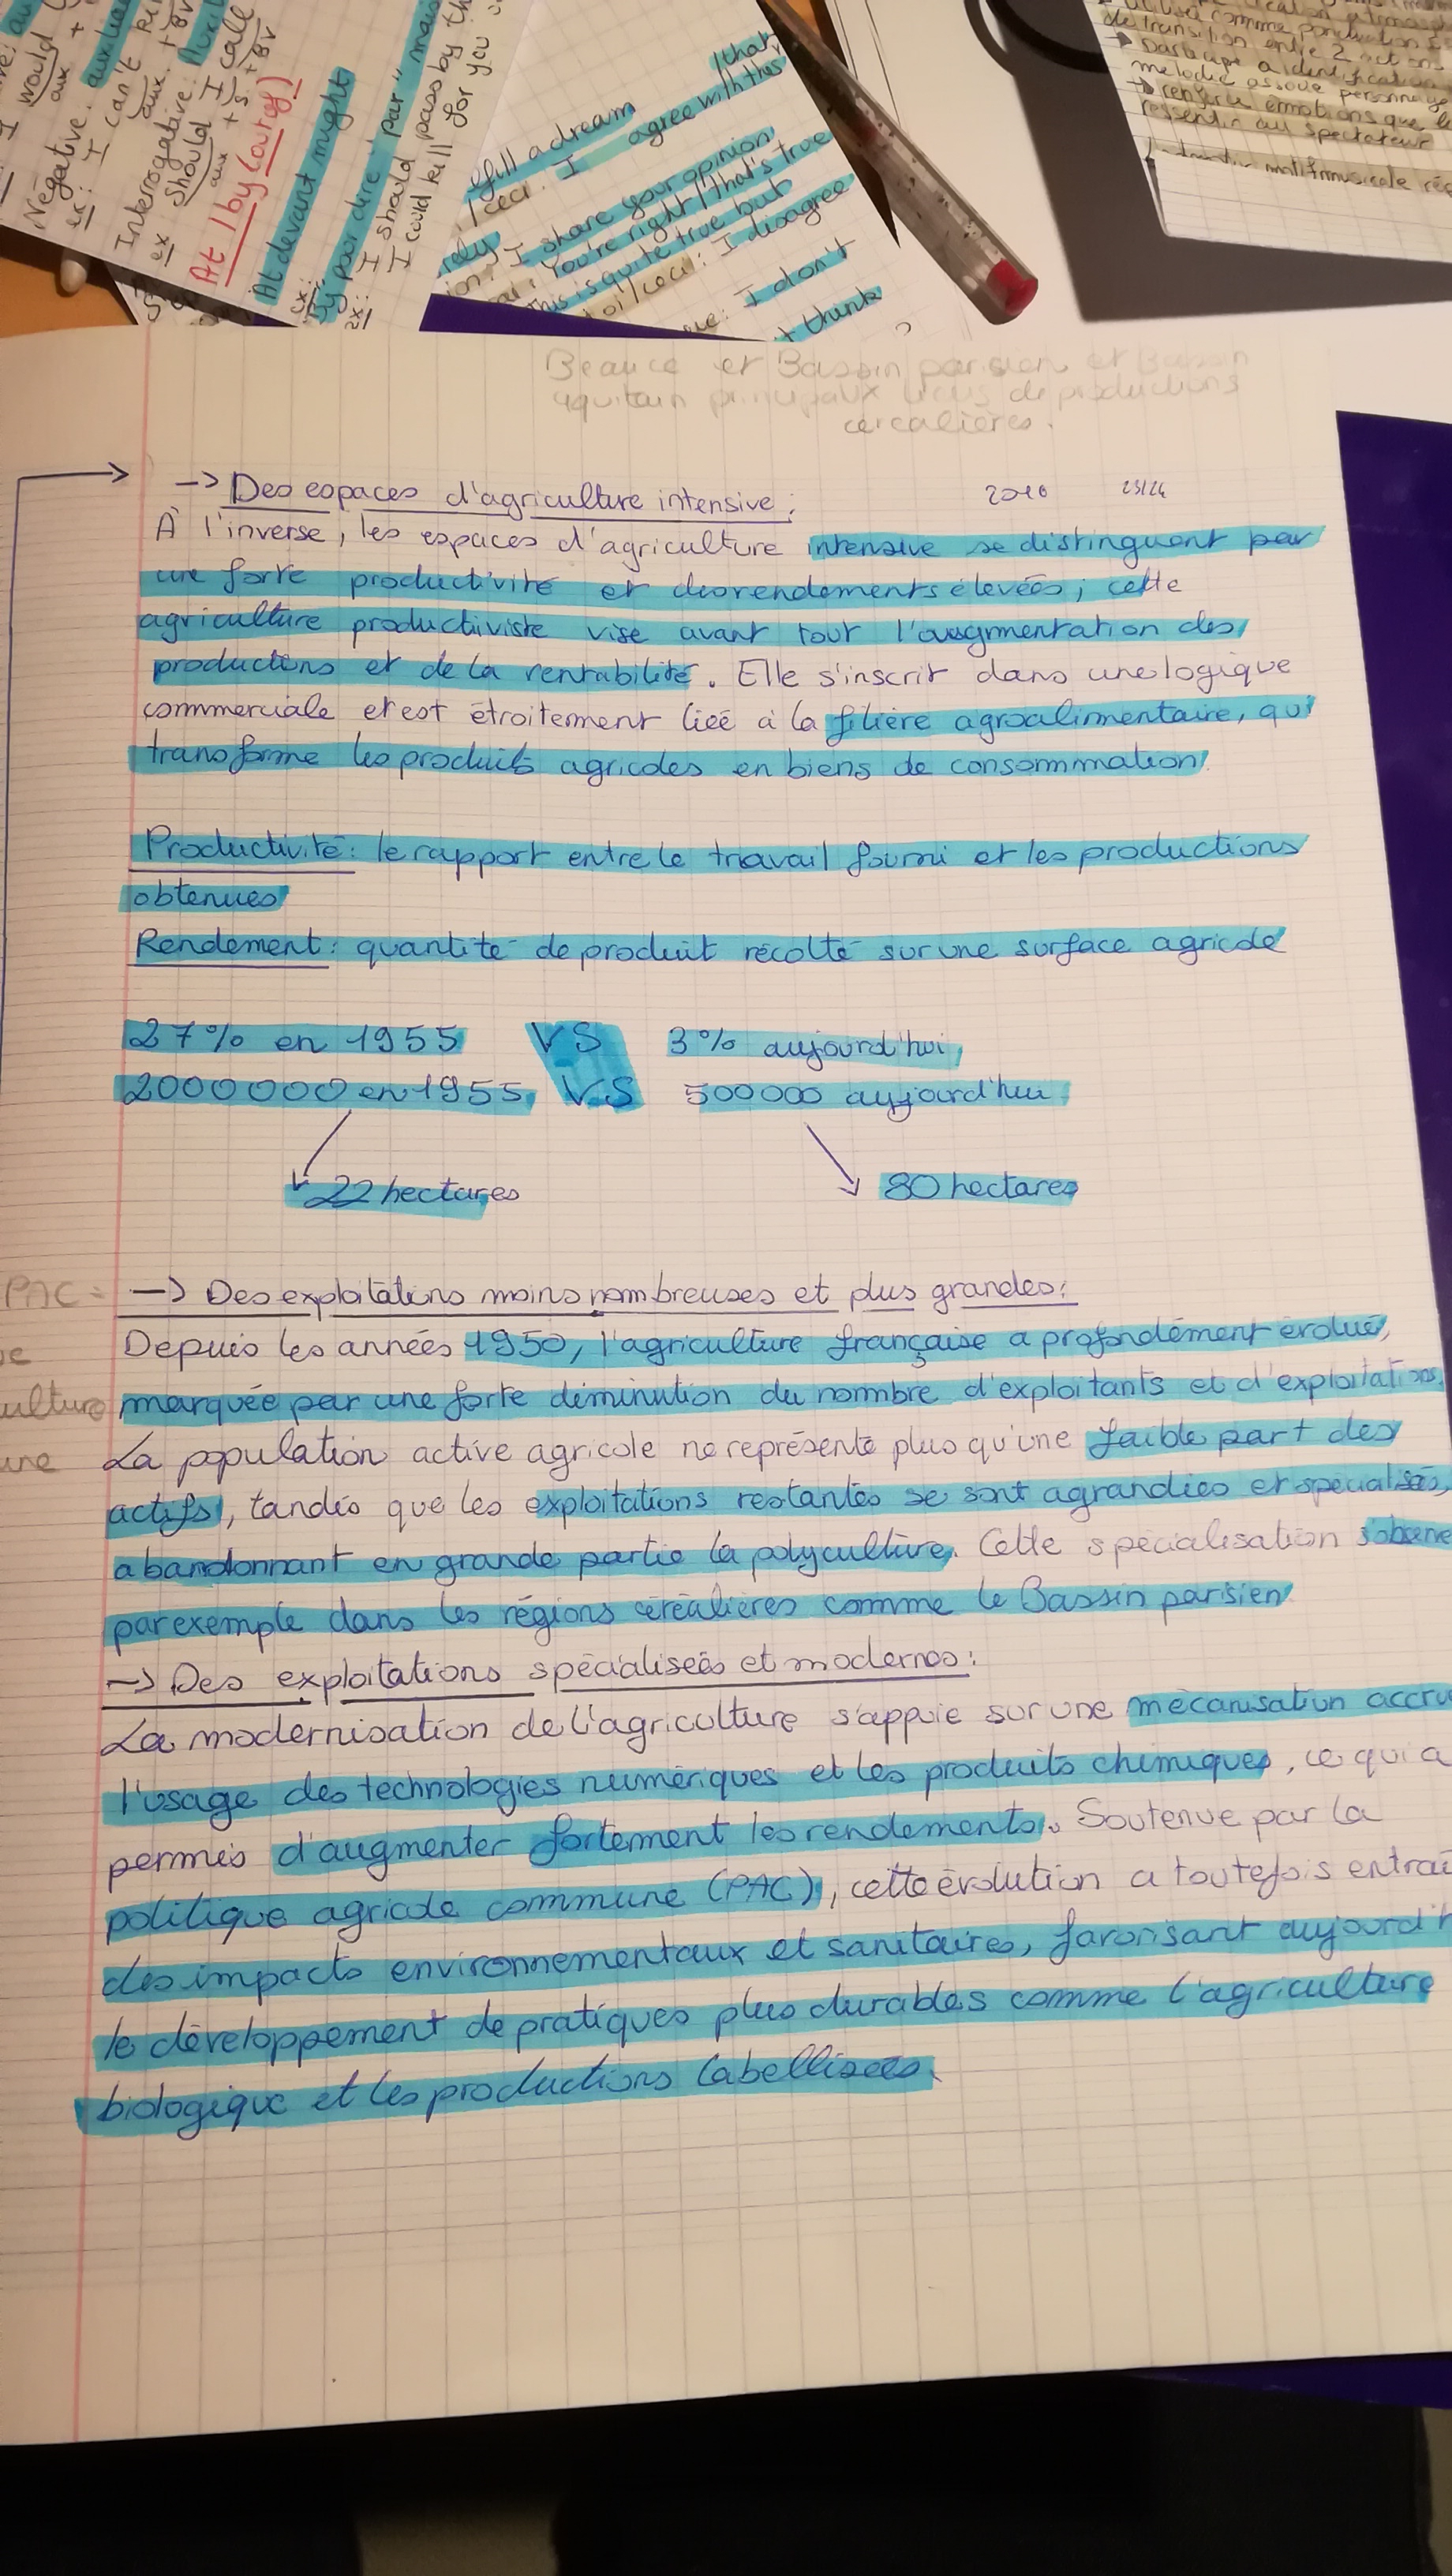 would
aux +
Négative: auxiliai
ex: I can't
aux.
Interrogative:
ex Should I call
aux + S. + BV
At / by (out of)
At devant night
ex:
By pour dire "par" mais
I should pass by th
ex: I could kill for you
fill a dream
/that
/ceci. I agree with this
rely
ion: I share your opinion
You're right / that's true
This is quite true but
toi/ceci: I disagree
ue: I don't
t think
comme ponctuation
de transition entre 2 actions
mélodie associé personnage
renforce émotions que
ressentir au spectateur
Beauce et Bassin parisien et Bassin
aquitain principaux lieux de productions
cerealières.
-> Des espaces d'agriculture intensive: 2010 23/24
À l'inverse, les espaces d'agriculture intensive se distinguent par
une forte productivité et des rendements élevées; cette
agriculture productiviste vise avant tout l'augmentation des
productions et de la rentabilité. Elle s'inscrit dans une logique
commerciale et est étroitement lieé à la filière agroalimentaire, qui
transforme les produits agricoles en biens de consommation.
Productivité: le rapport entre le travail fourni et les productions
obtenues
Rendement: quantité de produit récolté sur une surface agricole
27% en 1955 VS 3% aujourd'hui,
2000000 en 1955, VS 500000 aujourd'hui
22 hectares 80 hectares
PAC = -> Des exploitations moins nombreuses et plus grandes:
Depuis les années 1950, l'agriculture française a profondément évolué,
ulture marquée par une forte diminution du nombre d'exploitants et d'exploitations.
une La population active agricole ne représente plus qu'une faible part des
actifs, tandis que les exploitations restantes se sont agrandies et spécialisés,
abandonnant en grande partie la polyculture. Cette spécialisation s'observe
par exemple dans les régions céréalières comme le Bassin parisien
-> Des exploitations spécialiseés et modernes:
La modernisation de l'agriculture s'appuie sur une mécanisation accru
l'usage des technologies numériques et les produits chimiques, ce qui a
permis d'augmenter fortement les rendements. Soutenue par la
politique agricole commune (PAC), cette évolution a toutefois entraî
des impacts environnementaux et sanitaires, favorisant aujourd'h
le développement de pratiques plus durables comme l'agriculture
biologique et les productions labellisées.